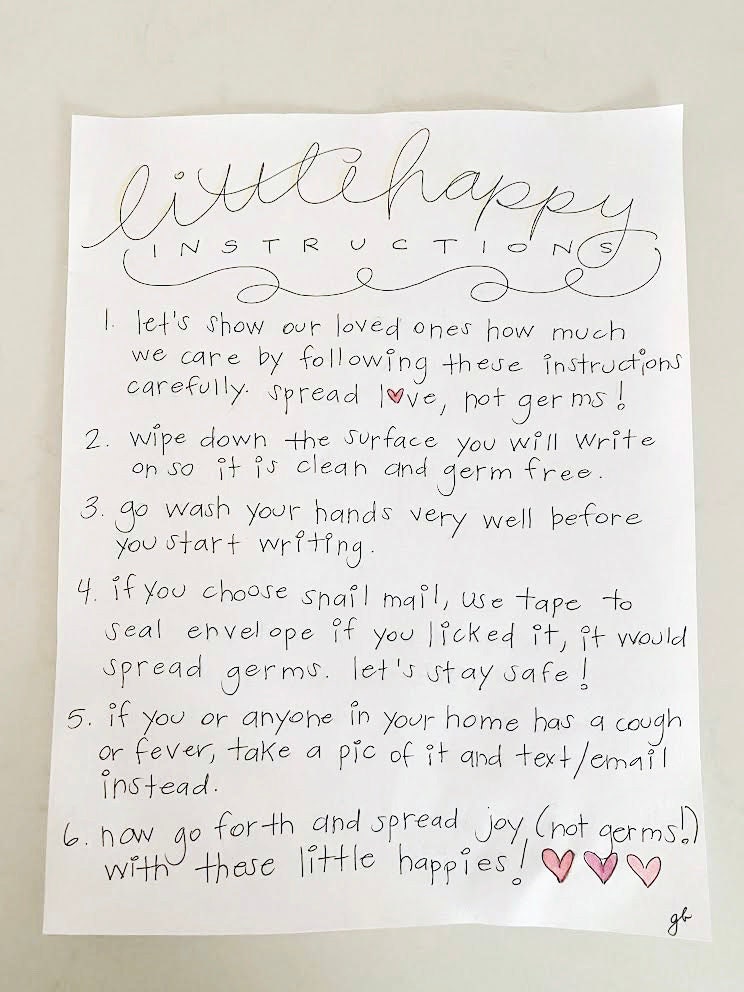 little happy
INSTRUCTIONS
1. let's show our loved ones how much
we care by following these instructions
carefully. spread l♥ve, not germs!
2. wipe down the surface you will write
on so it is clean and germ free.
3. go wash your hands very well before
you start writing.
4. if you choose snail mail, use tape to
seal envelope if you licked it, it would
spread germs. let's stay safe!
5. if you or anyone in your home has a cough
or fever, take a pic of it and text/email
instead.
6. now go forth and spread joy (not germs!)
with these little happies! ♥♥♥
gb